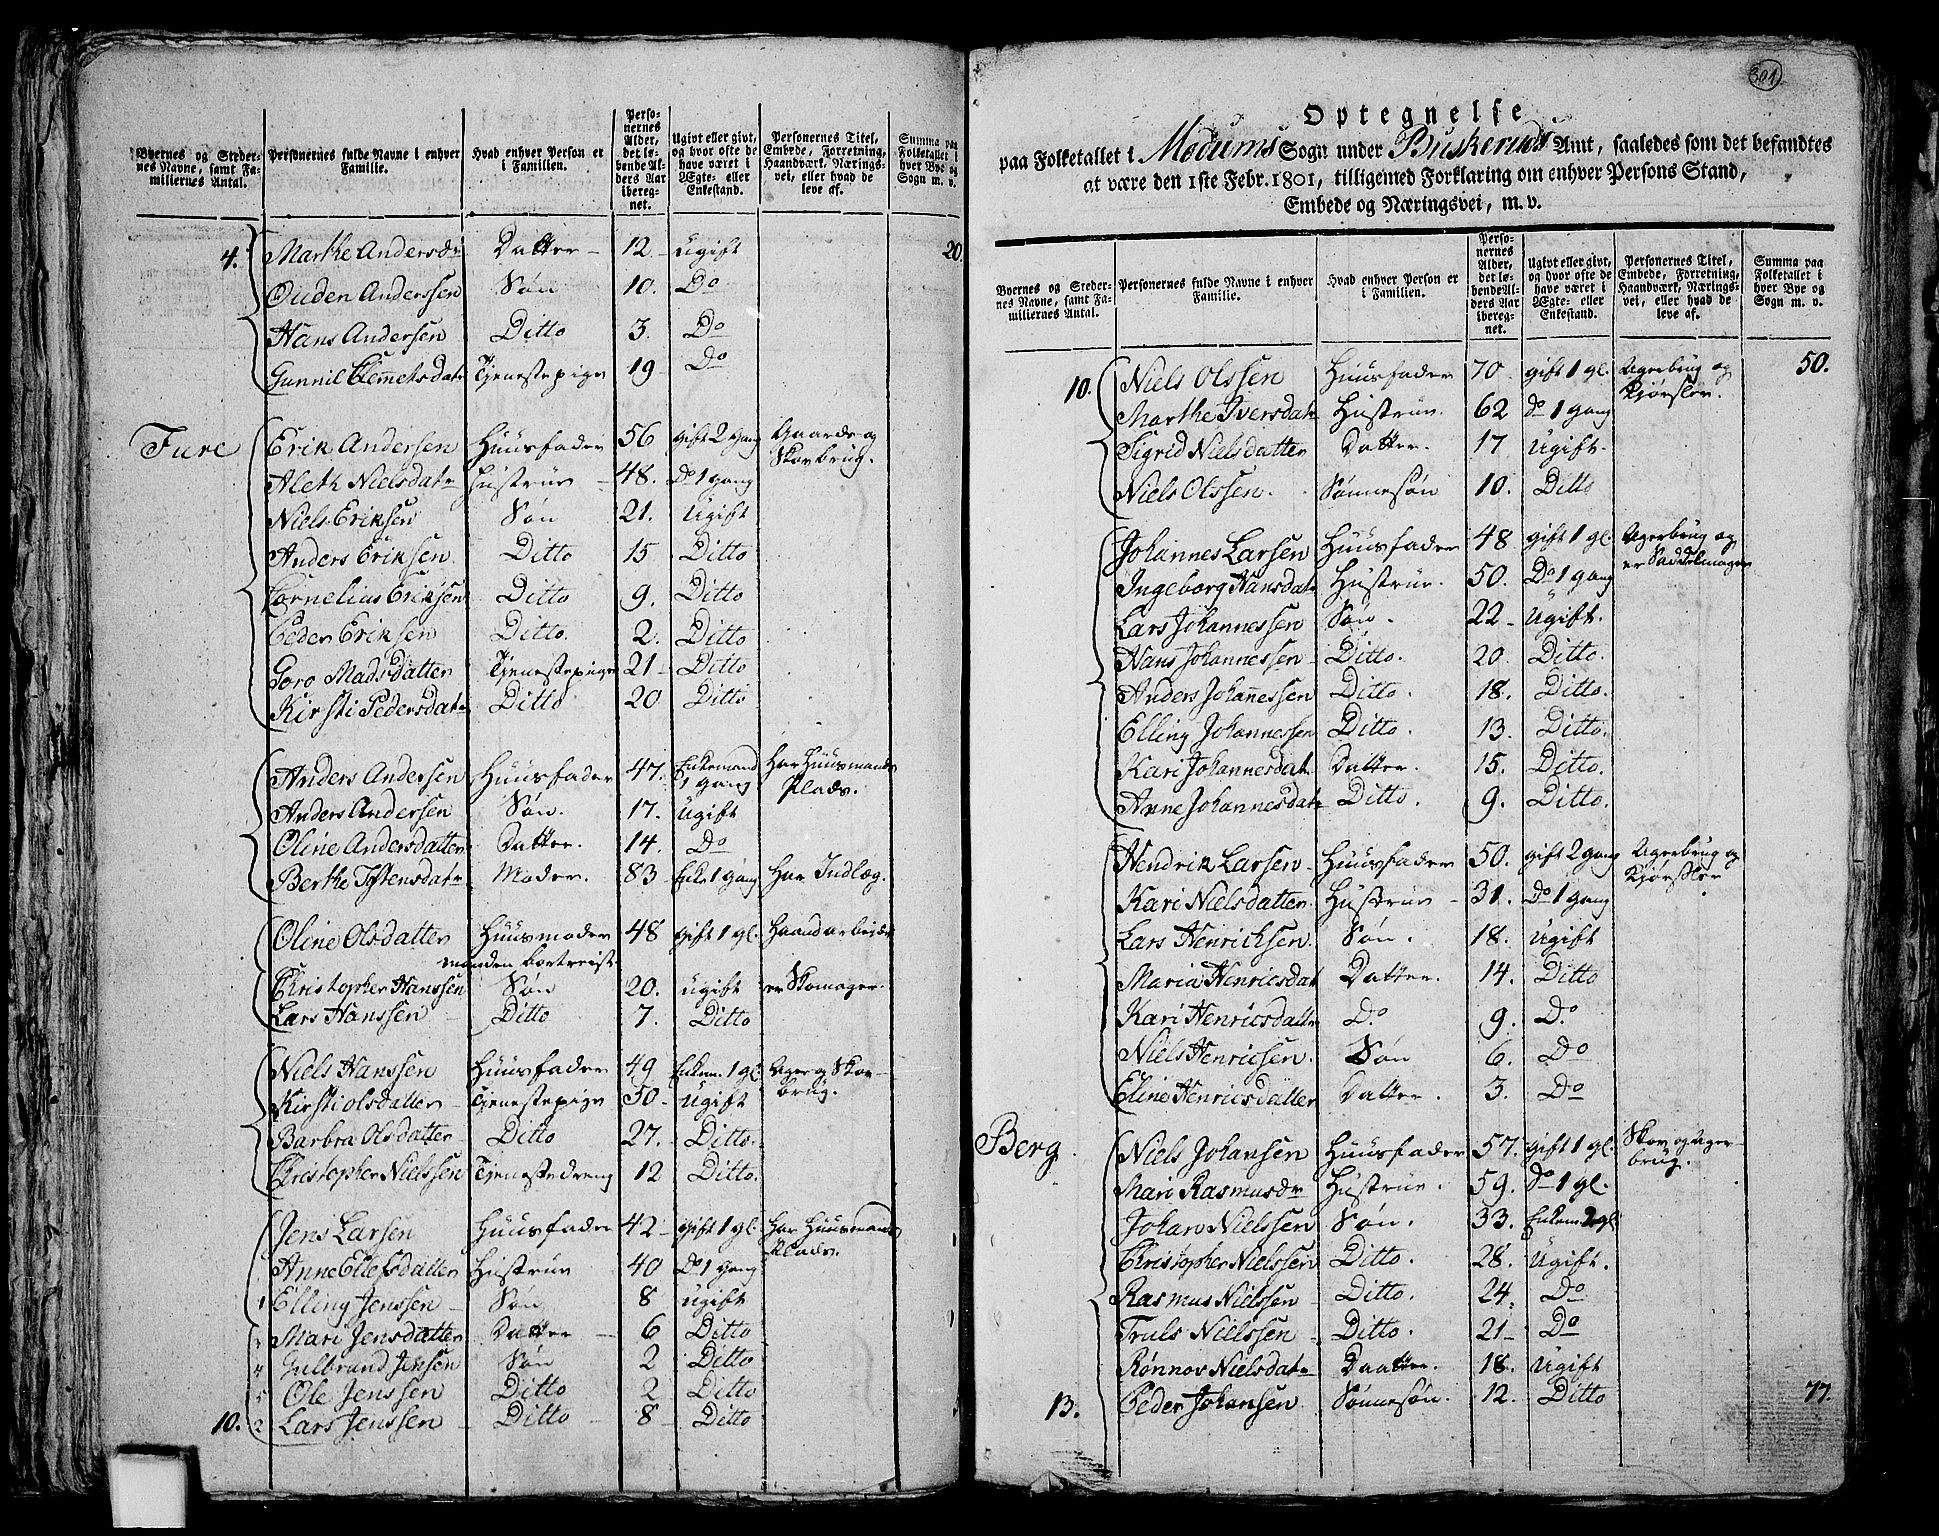 Byernes og Steder-
nes Navne, samt Fa-
miliernes Antal.
Personernes fulde Navne i enhver
Familie.
Hvad enhver Person er
i Familien.
Perso-
nernes
Alder,
det lø-
bende Al-
ders Aar
ibereg-
net.
Ugivt eller givt,
og hvor ofte de
have været i
Ægte- eller
Enkestand.
Personernes Titel,
Embede, Forretning,
Haandværk, Nærings-
vei, eller hvad de
leve af.
Summa paa
Folketallet i
hver Bye og
Sogn m. v.
4. Marthe Andersdr Datter 12 ugift 20
Ouden Anderssen Søn 10. Do
Hans Andersen Ditto 3. Do
Gunnil Clemetsdatr Tjenestepige 19 Do
Fure Erik Andersen Huusfader 56 gift 2 gang Gaards og
Skovbrug.
Aleth Nielsdatr Hustrue 48. Do 1 gang
Niels Eriksen Søn 21. Ugift
Anders Eriksen Ditto 15 Ditto
Cornelius Eriksen Ditto 9. Ditto
Peder Eriksen Ditto 2. Ditto
Goro Madsdatter Tjenestepige 21 Ditto
Kirsti Pedersdatr Ditto 20 Ditto
Anders Andersen Huusfader 47. Enkemand
1 gang Har Huusmands
Plads.
Anders Andersen Søn. 17. ugift
Oline Andersdatter Datter. 14. Do
Berthe Tostensdatr Moder. 83 Enke 1 gang Har Indlæg.
Oline Olsdatter Huusmoder 48 gift 1 gl. Haandarbeide
manden bortreist
Christopher Hanssen Søn 20. ugift er Skomager.
Lars Hanssen Ditto 7. Ditto
Niels Hanssen Huusfader 49 Enkem. 1 gl. Ager og Skov-
brug.
Kirsti Olsdatter Tjenestepige 50 ugift
Barbra Olsdatter Ditto 27. Ditto.
Christopher Nielssen Tjenestedreng 12 Ditto.
Jens Larsen Huusfader 42 gift 1 gl. Har Huusmands
Plads.
Anne Ellefsdatter Hustrue 40 Do 1 gang
1 Elling Jenssen Søn 8 ugift
Mari Jensdatter Datter 6 Ditto
4 Gulbrand Jensen Søn 2 Ditto
5 Ole Jenssen Ditto 2 Ditto
10. 2 Lars Jenssen Ditto 8 Ditto
301
Optegnelse
paa Folketallet i Modums Sogn under Buskeruds Amt, saaledes som det befandtes
at være den 1ste Febr. 1801, tilligemed Forklaring om enhver Persons Stand,
Embede og Næringsvei, m. v.
Byernes og Steder-
nes Navne, samt Fa-
miliernes Antal.
Personernes fulde Navne i enhver
Familie.
Hvad enhver Person er
i Familien.
Perso-
nernes
Alder,
det lø-
bende Al-
ders Aar
ibereg-
net.
Ugivt eller givt,
og hvor ofte de
have været i
Ægte- eller
Enkestand.
Personernes Titel,
Embede, Forretning,
Haandværk, Nærings-
vei, eller hvad de
leve af.
Summa paa
Folketallet i
hver Bye og
Sogn m. v.
10. Niels Olssen Huusfader 70 gift 1 gl. Agerbrug og
Kjørsler. 50.
Marthe Iversdatr Hustrue. 62 do 1 gang
Sigrid Nielsdatter Datter. 17 Ugift.
Niels Olssen. Sønnesøn 10. Ditto
Johannes Larsen Huusfader 48 gift 1 gl. Agerbrug og
er Saddelmager
Ingeborg Hansdatr Hustrue. 50. Do 1 gang
Lars Johannessen Søn. 22 Ugift.
Hans Johannessen Ditto. 20. Ditto.
Anders Johanessen Ditto. 18. Ditto.
Elling Johannessen Ditto. 13. Ditto.
Kari Johannesdat Datter. 15. Ditto.
Anne Johannesdatr Ditto. 9. Ditto.
Hendrik Larsen Huusfader 50. gift 2 gang Agerbrug og
Kjørsler
Kari Nielsdatter Hustrue 31. Do 1 gang
Lars Henricksen. Søn. 18. Ugift
Maria Henricsdat Datter. 14. Ditto
Kari Henricsdatter Do 9. Do
Niels Henricsen. Søn 6. Do
Eline Henricsdatter Datter. 3. Do
Berg Niels Johansen Huusfader 57. gift 1 gl. Skov og Ager-
brug.
Mari Rasmusdr Hustrue. 59. Do 1 gl.
Johan Nielssen Søn. 33. Enkem 2 gl.
Christopher Nielssen Ditto. 28. Ugift.
Rasmus Nielssen Ditto. 24. Do
Truls Nielssen Ditto. 21 Do
Rønnov Nielsdatr Daatter. 18. Ugift
13. Peder Johansen Sønnesøn. 12. Ditto 77.